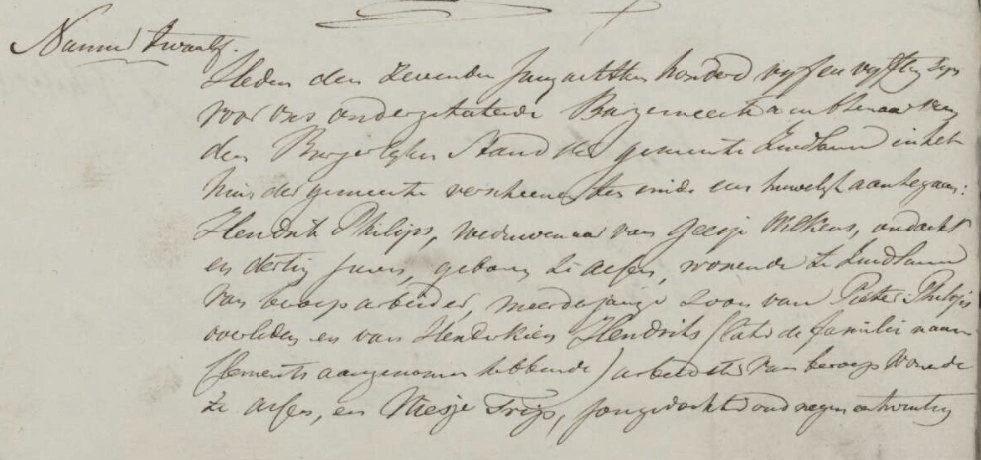 Nummer Twaalf.
Heden den zevenden Juny achttien honderd vyf en vyftig zyn
voor ons ondergetekende Burgemeester ambtenaar van
den Burgerlyken Stand der gemeente Zuidlaren in het
huis der gemeente verschenen ten einde een huwelyk aantegaan:
Hendrik Philips, weduwenaar van Geesje Wilkens, oud acht
en dertig jaren, geboren te , wonende te Zuidlaren
van beroep arbeider, meerderjarige zoon van Pieter Philips
overleden en van Henderkien Hendriks (later de familie naam
Clements aangenomen hebbende) arbeidster van beroep wonende
te , en Wesje Trips, jongedochter oud negen en twintig